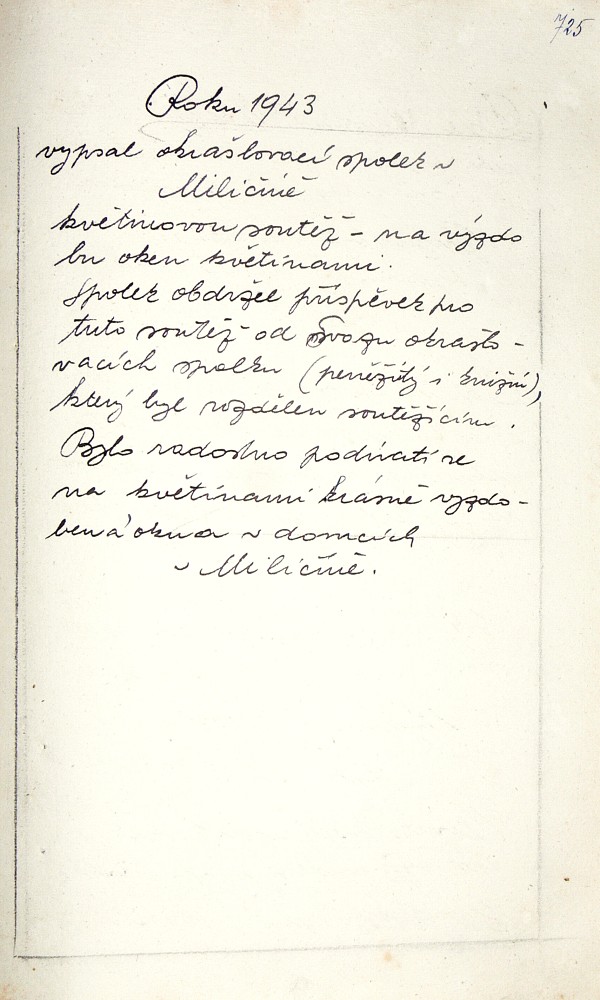 725
Roku 1943
vypsal okrašlovací spolek v
Miličíně
květinovou soutěž – na výzdo
bu oken květinami.
Spolek obdržel příspěvek pro
tuto soutěž od Svazu okrašlo-
vacích spolku (peněžitý i knižní),
který byl rozdělen soutěžícím.
Bylo radostno podívati se
na květinami krásně vyzdo-
bená okna v domcích
v Miličíně.